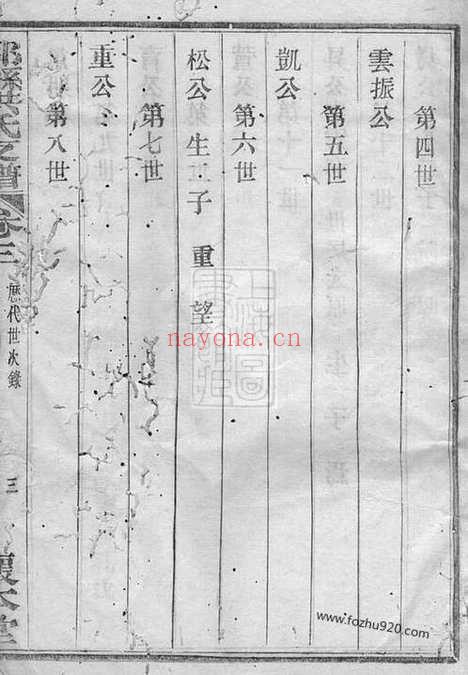 第四世
雲振公
第五世
凱公
第六世
松公 生二子 重 望
第七世
重公
第八世
氏支譜
卷三
歷代世次錄
三
nayona.cn
www.fozhu920.com